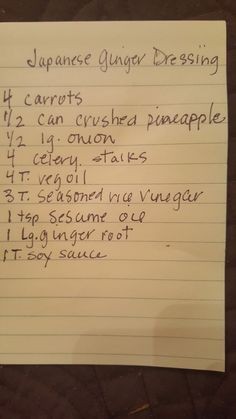 Japanese Ginger Dressing
4 carrots
1/2 can crushed pineapple
1/2 lg. onion
4 celery stalks
4 T. veg oil
3 T. seasoned rice vinegar
1 tsp sesume oil
1 Lg. ginger root
1 T. soy sauce